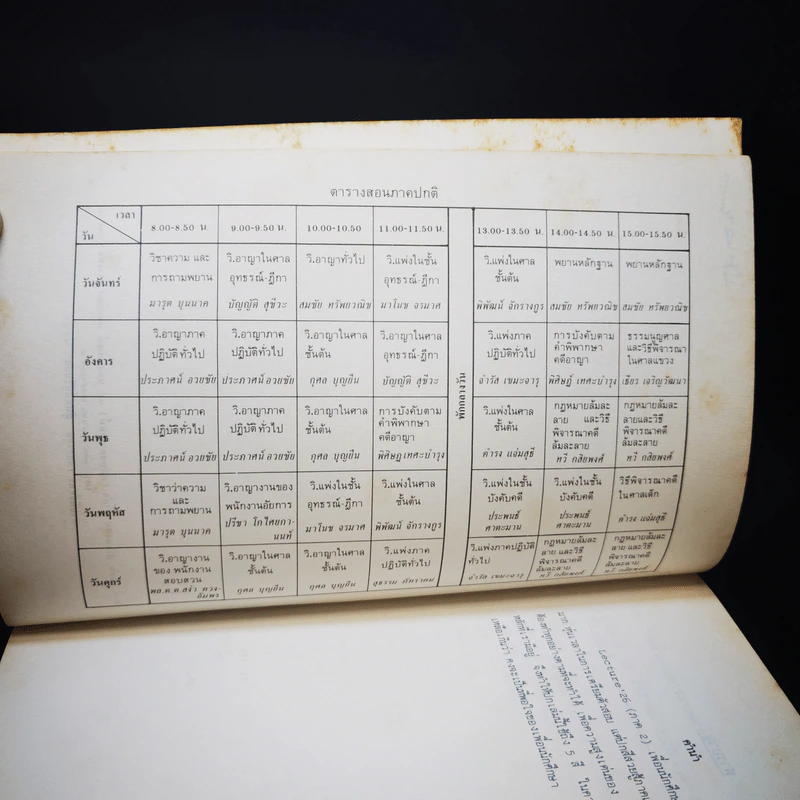 ตารางสอนภาคปกติ
เวลา
วัน
8.00-8.50 น.
9.00-9.50 น.
10.00-10.50
11.00-11.50 น.
พักกลางวัน
13.00-13.50 น.
14.00-14.50 น.
15.00-15.50 น.
วันจันทร์
วิชาความ และ
การถามพยาน
มารุต บุนนาค
วิ.อาญาในศาล
อุทธรณ์-ฎีกา
บัญญัติ สุชีวะ
วิ.อาญาทั่วไป
สมชัย ทรัพยวณิช
วิ.แพ่งในชั้น
อุทธรณ์-ฎีกา
มาโนช จรมาศ
วิ.แพ่งในศาล
ชั้นต้น
พิพัฒน์ จักรางกูร
พยานหลักฐาน
สมชัย ทรัพยวณิช
พยานหลักฐาน
สมชัย ทรัพยวณิช
อังคาร
วิ.อาญาภาค
ปฏิบัติทั่วไป
ประภาศน์ อวยชัย
วิ.อาญาภาค
ปฏิบัติทั่วไป
ประภาศน์ อวยชัย
วิ.อาญาในศาล
ชั้นต้น
กุศล บุญยืน
วิ.อาญาในศาล
อุทธรณ์-ฎีกา
บัญญัติ สุชีวะ
วิ.แพ่งภาค
ปฏิบัติทั่วไป
จำรัส เขมะจารุ
การบังคับตาม
คำพิพากษา
คดีอาญา
พิศิษฏ์ เทศะบำรุง
ธรรมนูญศาล
และวิธีพิจารณา
ในศาลแขวง
เธียร เจริญวัฒนา
วันพุธ
วิ.อาญาภาค
ปฏิบัติทั่วไป
ประภาศน์ อวยชัย
วิ.อาญาภาค
ปฏิบัติทั่วไป
ประภาศน์ อวยชัย
วิ.อาญาในศาล
ชั้นต้น
กุศล บุญยืน
การบังคับตาม
คำพิพากษา
คดีอาญา
พิศิษฏ เทศะบำรุง
วิ.แพ่งในศาล
ชั้นต้น
ดำรง แจ่มสุธี
กฎหมายล้มละ
ลาย และวิธี
พิจารณาคดี
ล้มละลาย
ทวี กสิยพงศ์
กฎหมายล้มละ
ลายและวิธี
พิจารณาคดี
ล้มละลาย
ทวี กสิยพงศ์
วันพฤหัส
วิชาว่าความ
และ
การถามพยาน
มารุต บุนนาค
วิ.อาญางานของ
พนักงานอัยการ
ปรีชา โกไศยกา-
นนท์
วิ.แพ่งในชั้น
อุทธรณ์-ฎีกา
มาโนช จรมาศ
วิ.แพ่งในศาล
ชั้นต้น
พิพัฒน์ จักรางกูร
วิ.แพ่งในชั้น
บังคับคดี
ประพนธ์
ศาตะมาน
วิ.แพ่งในชั้น
บังคับคดี
ประพนธ์
ศาตะมาน
วิธีพิจารณาคดี
ในศาลเด็ก
ดำรง แจ่มสุธี
วันศุกร์
วิ.อาญางาน
ของ พนักงาน
สอบสวน
วิ.อาญาในศาล
ชั้นต้น
กุศล บุญยืน
วิ.อาญาในศาล
ชั้นต้น
กุศล บุญยืน
วิ.แพ่งภาค
ปฏิบัติทั่วไป
สุธรรม ภัทราคม
วิ.แพ่งภาคปฏิบัติ
ทั่วไป
จำรัส เขมะจารุ
กฎหมายล้มละ
ลาย และวิธี
พิจารณาคดี
ล้มละลาย
ทวี กสิยพงศ์
กฎหมายล้มละ
ลาย และวิธี
พิจารณาคดี
ล้มละลาย
ทวี กสิยพงศ์
คำนำ
Lecture'26 (ภาค 2) เพื่อนนักศึกษา
มาก ทุ่มเวลาในการเตรียมตัวสอบ
ต้องทำทุกอย่างตามที่จะทำได้ เพื่อความสูงเด่นของ
หลักที่เรามีอยู่ จึงทำให้ปกเล่มนี้ใช้ถึง 5 สี
เหลือเกินว่า คงจะเป็นที่พอใจของเพื่อนนักศึกษา